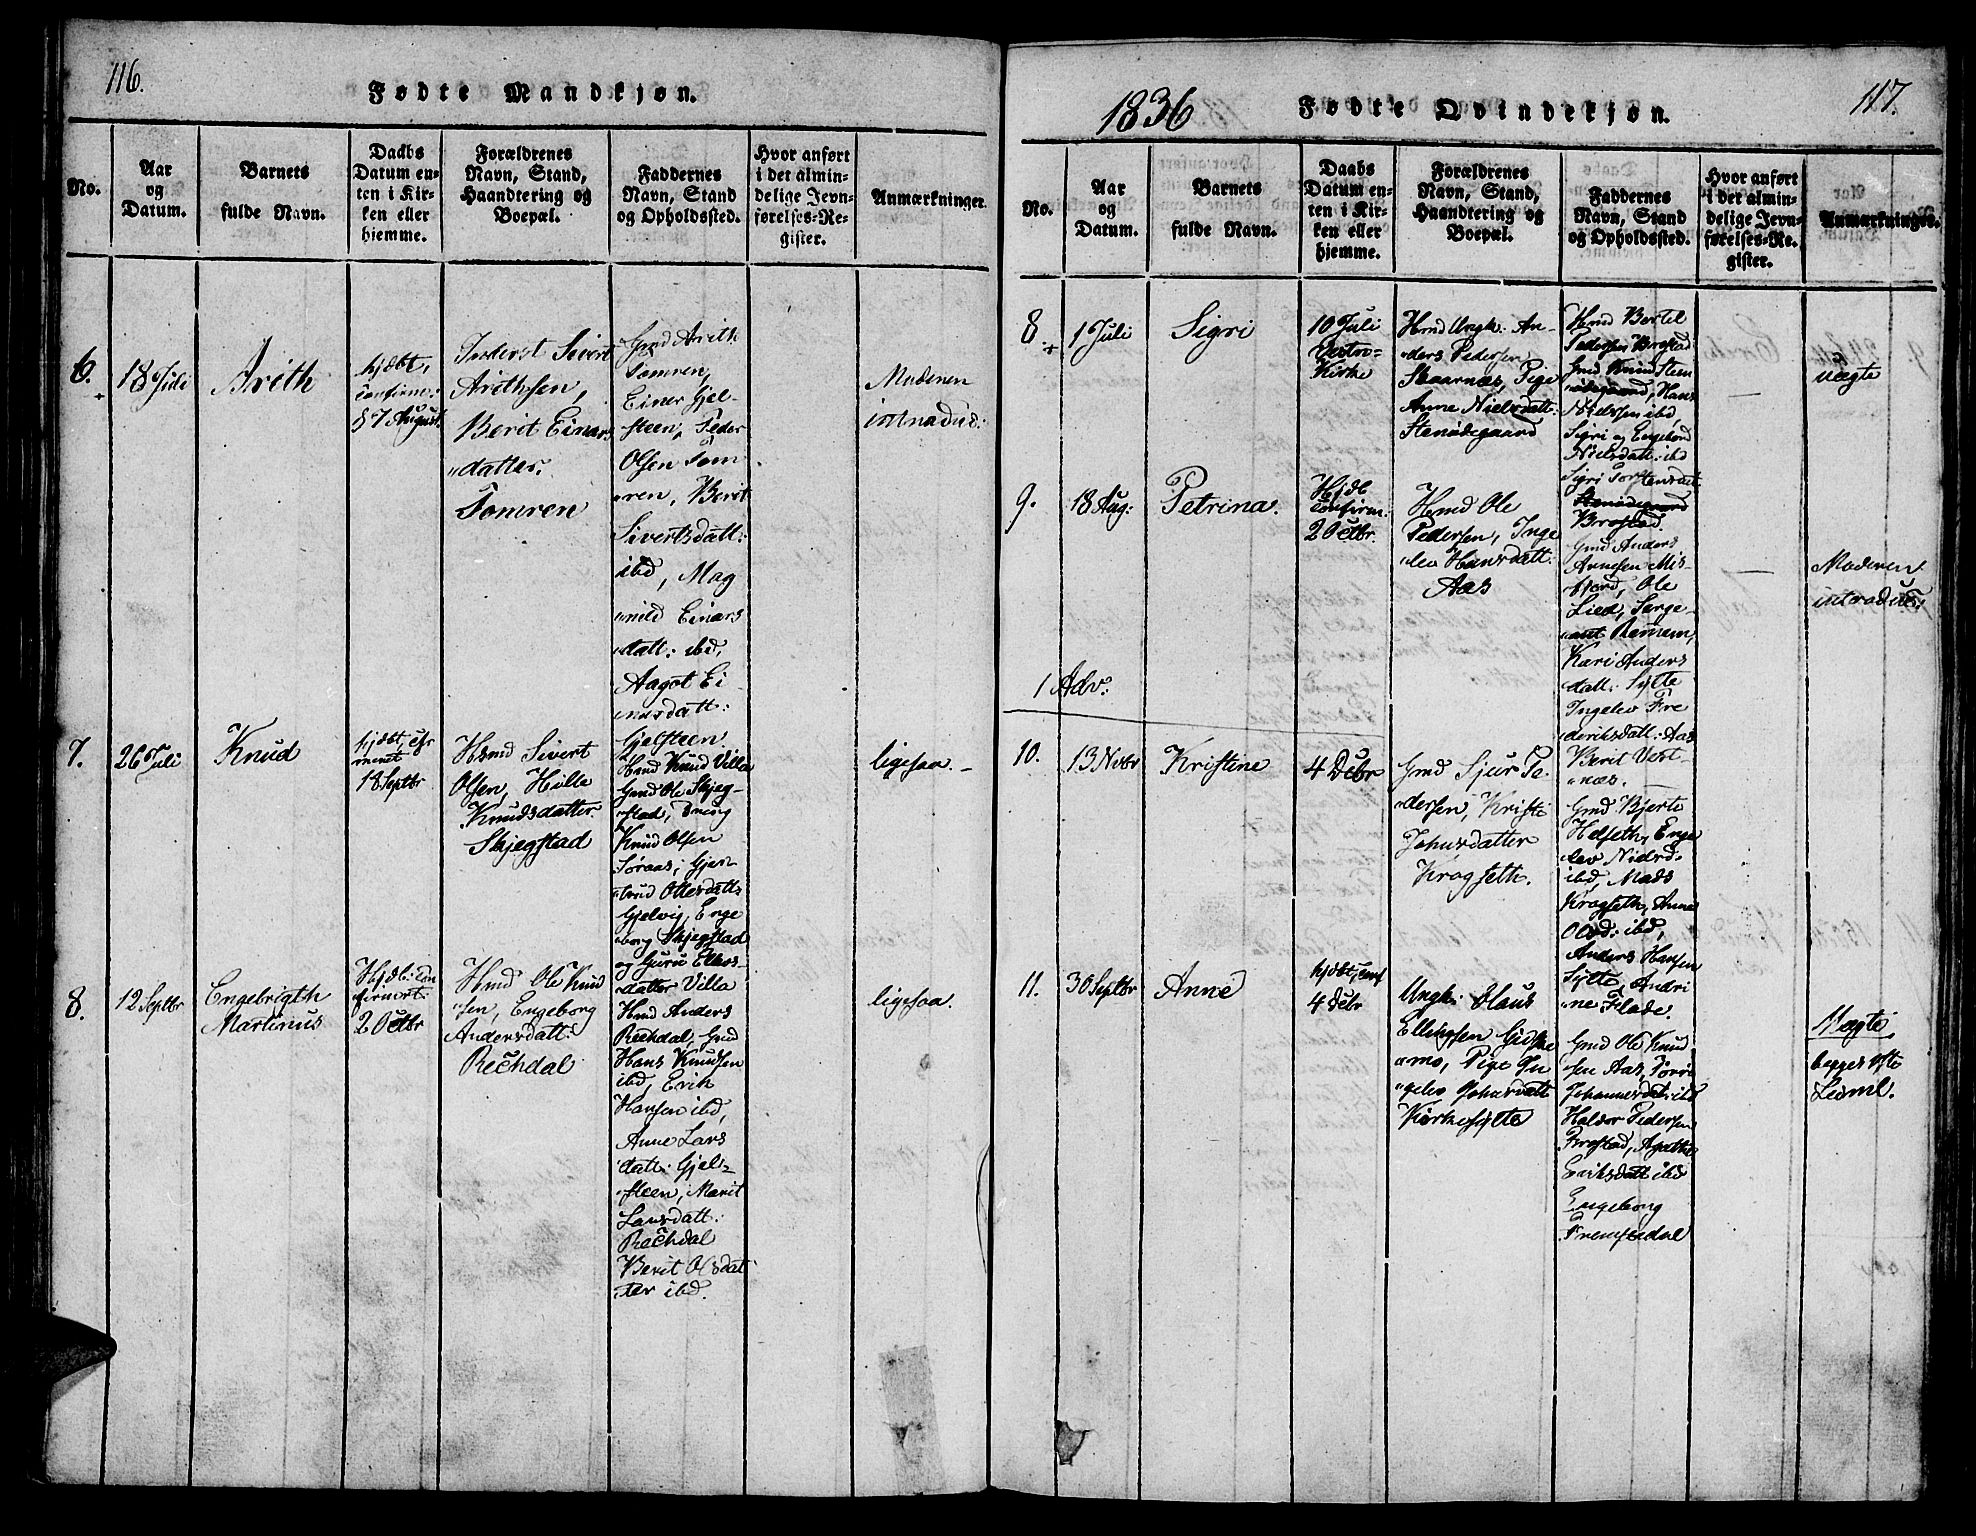 116.
Fødte Mandkjøn.
No.
Aar
og
Datum.
Barnets
fulde Navn.
Daabs
Datum en-
ten i Kir-
ken eller
hjemme.
Forældrenes
Navn, Stand,
Haandtering og
Boepæl.
Faddernes
Navn, Stand
og Opholdssted.
Hvor anført
i det almin-
delige Jevn-
førelses-Re-
gister.
Anmærkninger.
6.
18 Juli
Arith
hjdbt,
confirm:
d 7 August
Inderst Sivert
Arithsen,
Berit Einars
"datter.
Tomren
Gmd Arith
Tomren,
Einer Gjel-
steen, Peder
Olsen Tom
"ren, Berit
Sivertsdatt:
ibd, Mag
"nild Einars
"datt: ibd,
Aagot Ei
"narsdatt:
Gjelsteen
Moderen
introdud:
7.
26 Juli
Knud
hjdbt, cfr
meret
18 Septbr
Hsmd Sivert
Olsen, Hille
Knudsdatter
Skjegstad
Hmd Knud Villa
Gmd Ole Skjeg-
stad, Dreng
Knud Olsen
Soraas, Gjer
"trud Ottersdatt:
Gjelvig, Enge
"borg Skjegstad
og Guru
datter Villa
ligesaa.-
8.
12 Septbr
Engebrigth
Martinus
Hjdb: con
firmert
2 Octbr
Hmd Ole Knud
"sen, Engeborg
Andersdatt:
Rechdal
Hmd Anders
Rechdal, Gmd
Hans Knudsen
ibd, Erik
Hansen ibd,
Anne Lars
datt: Gjel-
steen, Marit
Larsdatt:
Rechdal
Berit Olsdat
"ter ibd.
ligesaa.
1836
Fødte Qvindekjøn.
117.
No.
Aar
og
Datum.
Barnets
fulde Navn.
Daabs
Datum en-
ten i Kir-
ken eller
hjemme.
Forældrenes
Navn, Stand,
Haandtering og
Boepæl.
Faddernes
Navn, Stand
og Opholdssted.
Hvor anført
i det almin-
delige Jevn-
førelses-Re-
gister.
Anmærkninger.
8.
1 Juli
Sigri
10 Juli
Vestre-
Kirke
Hmd Ungk: An-
ders Pedersen
Skaarnæs, Pige
Anne Nielsdatt:
Stenødegaard
Hmd Bertel
Pedersen Brostad
Gmd Knud Sten
"ødegaard, Hans
Nielsen ibd,
Sigri og Engebord
Nielsdatt: ibd
Sigri Torstensdat
Stenødegaard
Brostad
uægte
9.
18 Aug:
Petrina.
Hjdb
confirm.
2 Octbr.
Hmd Ole
Pedersen, Inge
"lev Hansdatt:
Aas
Gmd Anders
Arnesen Mis-
fjord, Ole
Lied, Serge-
"ant
Kari Anders
datt: Sylte
Ingelev Fre
deriksdatt: Aas
Berit Vest-
"næs.
Moderen
introduc,
1 Adv:
10.
13 Novbr
Kristine
4 Debr
Gmd Sjur Pe
"dersen, Kristi
Johnsdatter
Krogseth.
Gmd Bjerte
Helseth, Enge
"lev Nielsd:
ibd, Mads
Krogseth, Anne
Olsd: ibd,
Anders Hansen
Sylte, Andri
"ne Flade.
11.
30 Septbr
Anne
hjdbt, conf
4 Debr
Ungk: Olaus
Ellingsen Gidske
"mo, Pige In
"gelev Johansdatt
Kirkesylte
Gmd Ole Knud
sen Aas,
Johannesdat: ibd
Haldor Pedersen
Brostad, Agathe
Eriksdatt ibd
Engeborg
Fremstedal
Uægte
begges 1ste
Leieml.